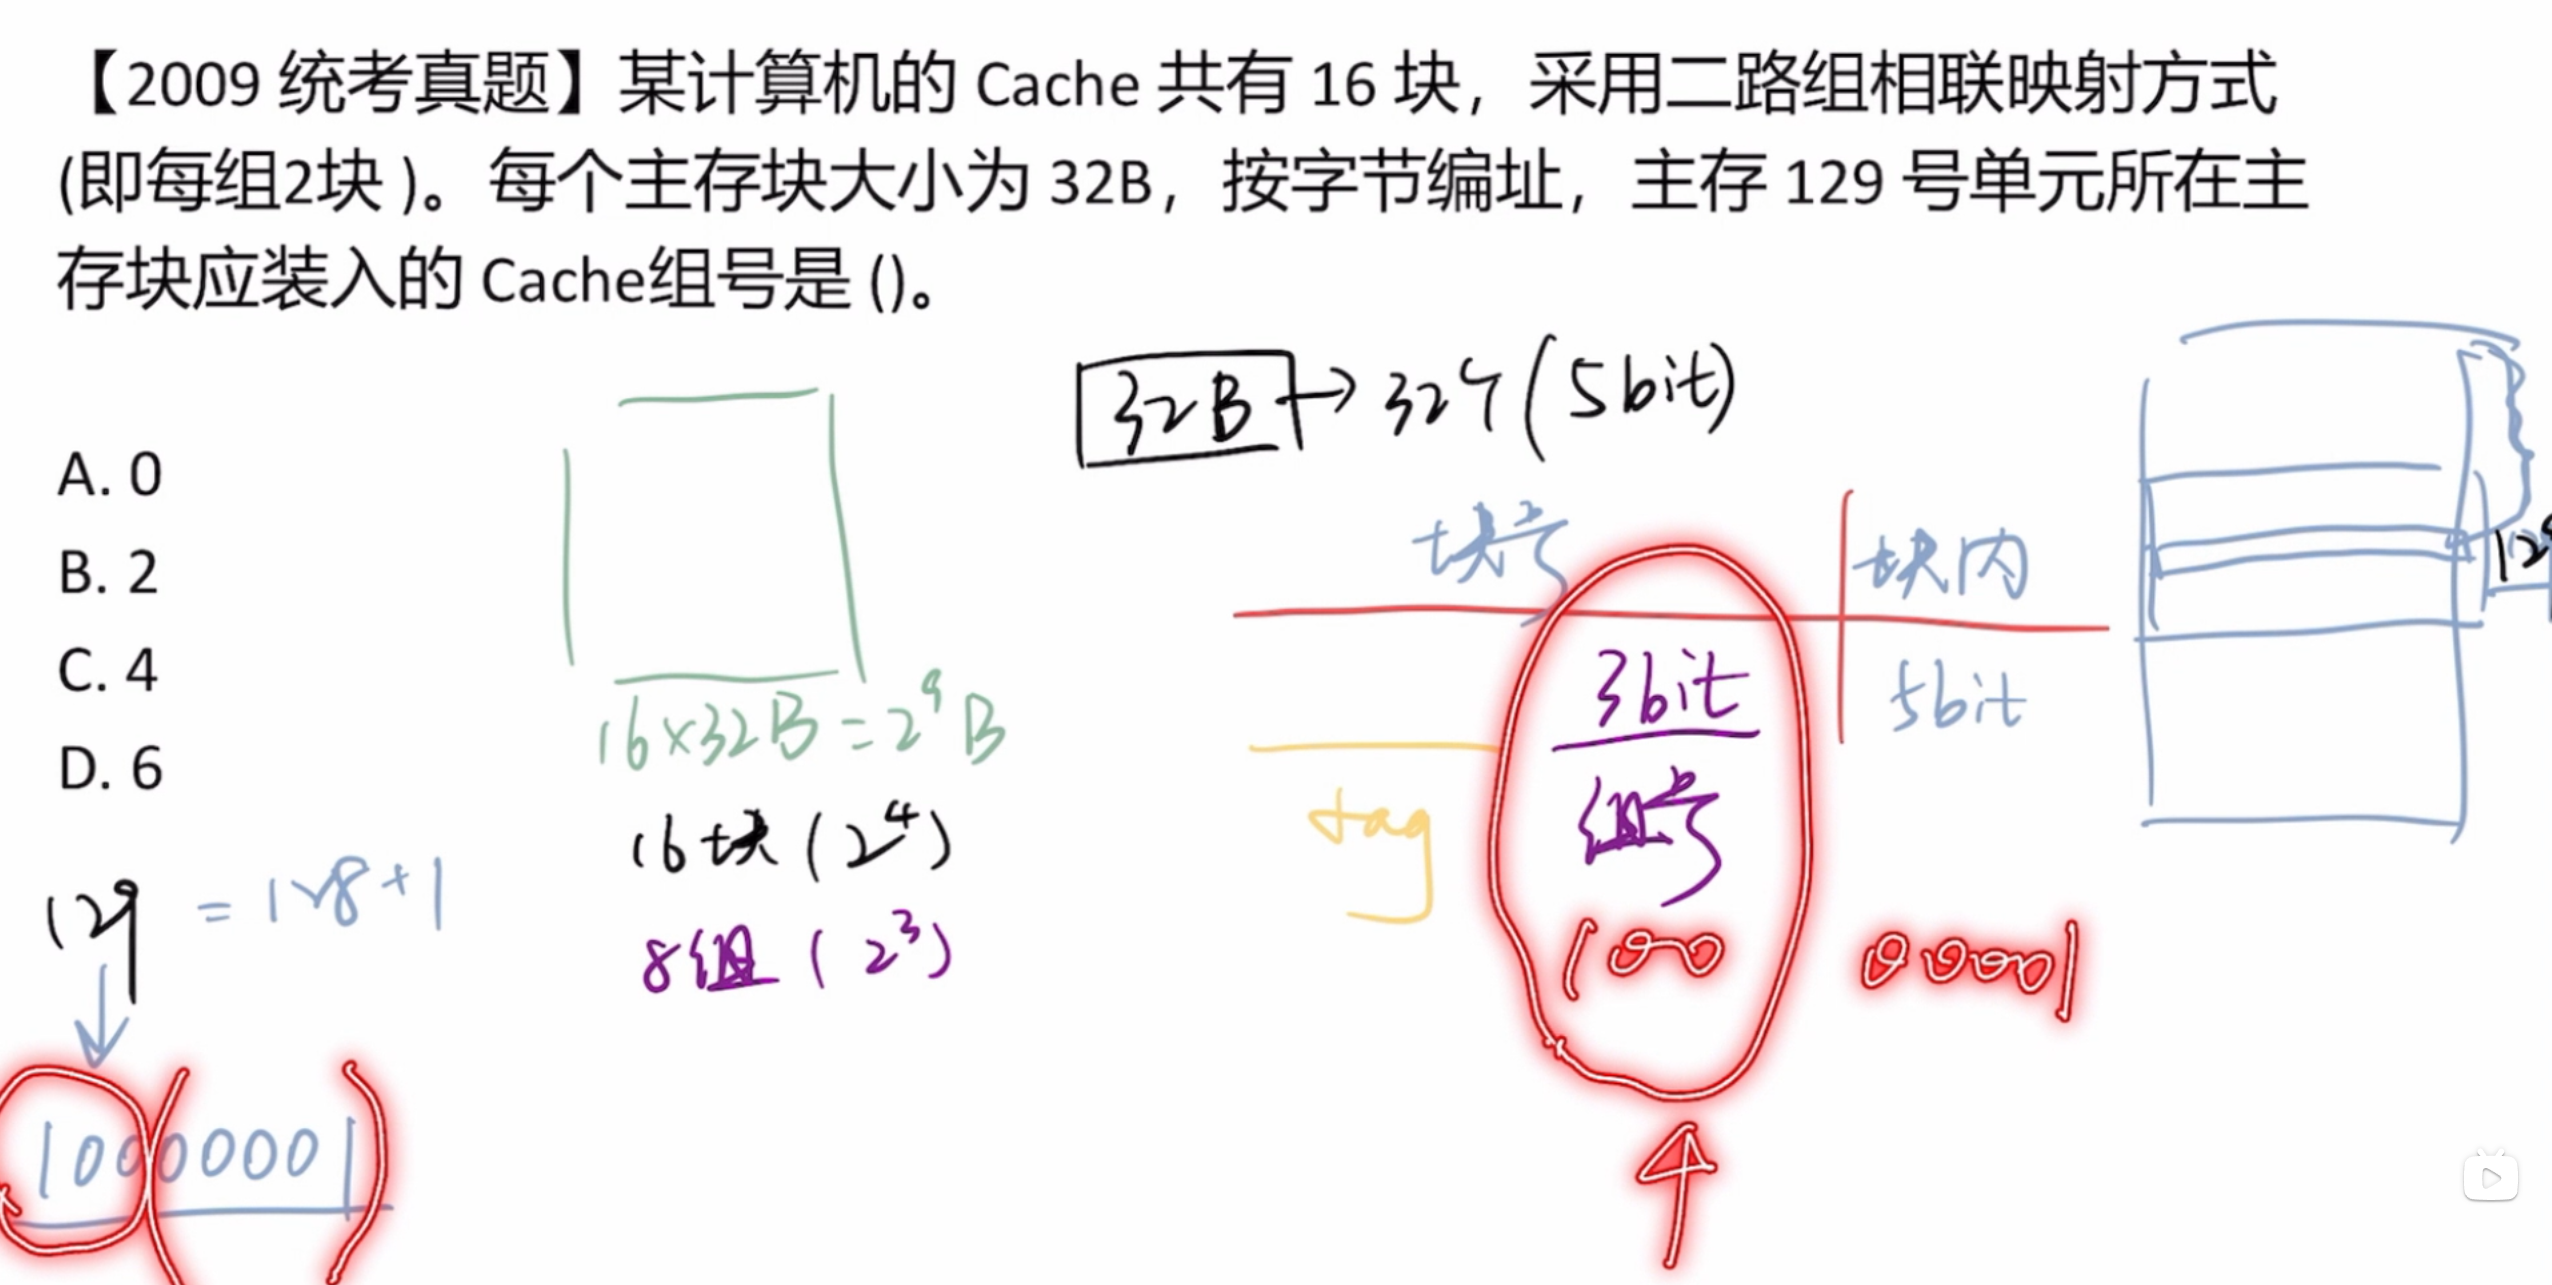 【2009 统考真题】某计算机的 Cache 共有 16 块，采用二路组相联映射方式
(即每组2块 )。每个主存块大小为 32B，按字节编址，主存 129 号单元所在主
存块应装入的 Cache组号是 ()。
32B → 32个 (5bit)
A. 0
B. 2
C. 4
D. 6
块号 块内
3bit 5bit
组号
tag
100 00001
16×32B = 2⁹ B
16块 (2⁴)
8组 (2³)
129 = 128+1
10000001
129